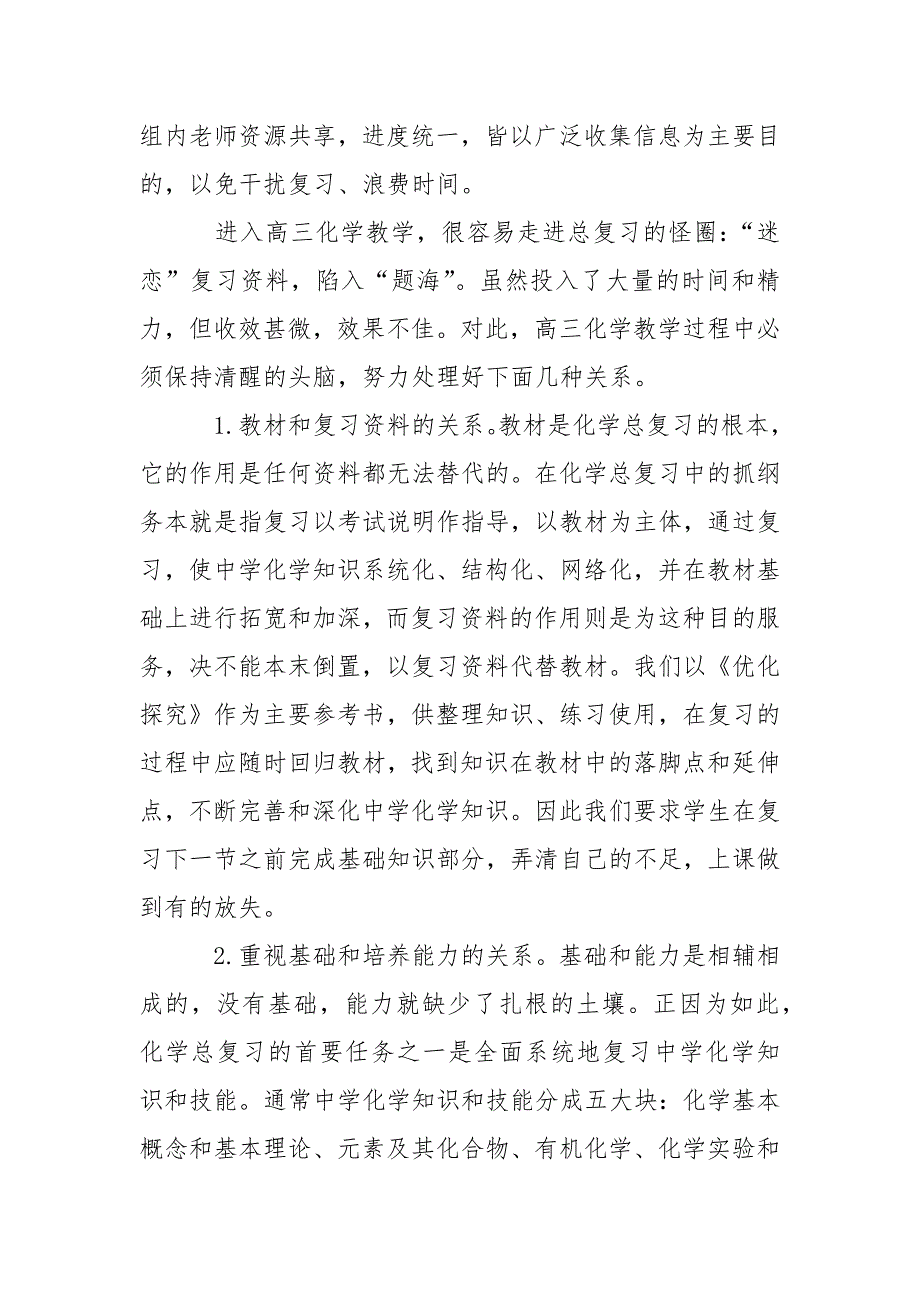 组内老师资源共享，进度统一，皆以广泛收集信息为主要目
的，以免干扰复习、浪费时间。
进入高三化学教学，很容易走进总复习的怪圈：“迷
恋”复习资料，陷入“题海”。虽然投入了大量的时间和精
力，但收效甚微，效果不佳。对此，高三化学教学过程中必
须保持清醒的头脑，努力处理好下面几种关系。
1.教材和复习资料的关系。教材是化学总复习的根本，
它的作用是任何资料都无法替代的。在化学总复习中的抓纲
务本就是指复习以考试说明作指导，以教材为主体，通过复
习，使中学化学知识系统化、结构化、网络化，并在教材基
础上进行拓宽和加深，而复习资料的作用则是为这种目的服
务，决不能本末倒置，以复习资料代替教材。我们以《优化
探究》作为主要参考书，供整理知识、练习使用，在复习的
过程中应随时回归教材，找到知识在教材中的落脚点和延伸
点，不断完善和深化中学化学知识。因此我们要求学生在复
习下一节之前完成基础知识部分，弄清自己的不足，上课做
到有的放失。
2.重视基础和培养能力的关系。基础和能力是相辅相
成的，没有基础，能力就缺少了扎根的土壤。正因为如此，
化学总复习的首要任务之一是全面系统地复习中学化学知
识和技能。通常中学化学知识和技能分成五大块：化学基本
概念和基本理论、元素及其化合物、有机化学、化学实验和